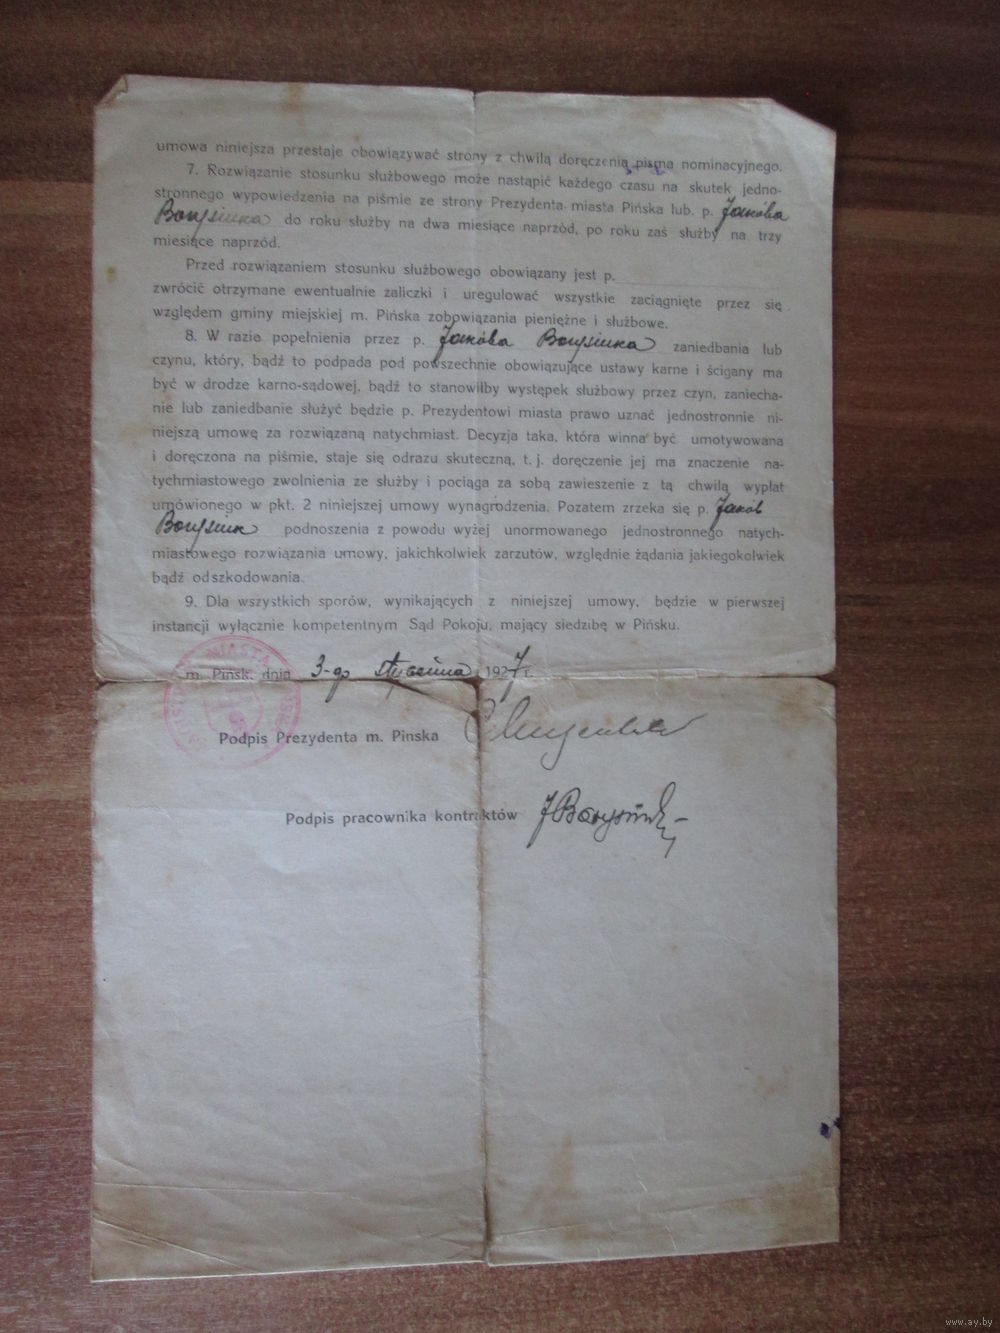 umowa niniejsza przestaje obowiązywać strony z chwilą doręczenia pisma nominacyjnego.
7. Rozwiązanie stosunku służbowego może nastąpić każdego czasu na skutek jedno-
stronnego wypowiedzenia na piśmie ze strony Prezydenta miasta Pińska lub p. Jakóba
Borysiuka do roku służby na dwa miesiące naprzód, po roku zaś służby na trzy
miesiące naprzód.
Przed rozwiązaniem stosunku służbowego obowiązany jest p.
zwrócić otrzymane ewentualnie zaliczki i uregulować wszystkie zaciągnięte przez się
względem gminy miejskiej m. Pińska zobowiązania pieniężne i służbowe.
8. W razie popełnienia przez p. Jakóba Borysiuka zaniedbania lub
czynu, który, bądź to podpada pod powszechnie obowiązujące ustawy karne i ścigany ma
być w drodze karno-sądowej, bądź to stanowiłby występek służbowy przez czyn, zaniecha-
nie lub zaniedbanie służyć będzie p. Prezydentowi miasta prawo uznać jednostronnie ni-
niejszą umowę za rozwiązaną natychmiast. Decyzja taka, która winna być umotywowana
i doręczona na piśmie, staje się odrazu skuteczną, t. j. doręczenie jej ma znaczenie na-
tychmiastowego zwolnienia ze służby i pociąga za sobą zawieszenie z tą chwilą wypłat
umówionego w pkt. 2 niniejszej umowy wynagrodzenia. Pozatem zrzeka się p. Jakób
Borysiuk podnoszenia z powodu wyżej unormowanego jednostronnego natych-
miastowego rozwiązania umowy, jakichkolwiek zarzutów, względnie żądania jakiegokolwiek
bądź odszkodowania.
9. Dla wszystkich sporów, wynikających z niniejszej umowy, będzie w pierwszej
instancji wyłącznie kompetentnym Sąd Pokoju, mający siedzibę w Pińsku.
m. Pińsk, dnia 3-go stycznia 1927 r.
MIASTA
Podpis Prezydenta m. Pinska
Podpis pracownika kontraktów JBorysiuk
www.ay.by